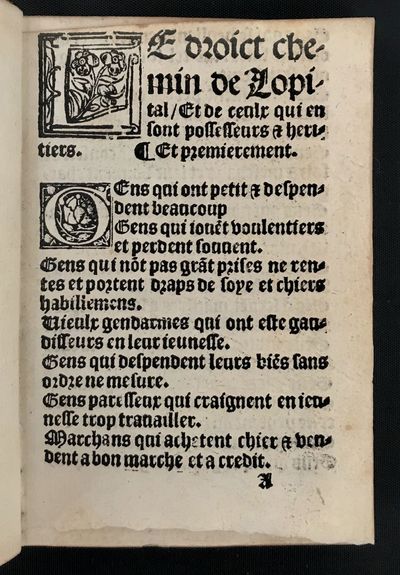 LE droict che-
min de Lopi-
tal/Et de ceulx qui en
sont possesseurs ⁊ heri-
tiers. ¶ Et premierement.
GEns qui ont petit ⁊ despen-
dent beaucoup
Gens qui iouēt voulentiers
et perdent souuent.
Gens qui nōt pas grāt prises ne ren-
tes et portent draps de soye et chiers
habillemens.
Vieulx gendarmes qui ont este gau-
disseurs en leur ieunesse.
Gens qui despendent leurs biēs sans
ordre ne mesure.
Gens paresseux qui craignent en ieu-
nesse trop trauailler.
Marchans qui achetent chier ⁊ ven-
dent a bon marche et a credit.
A